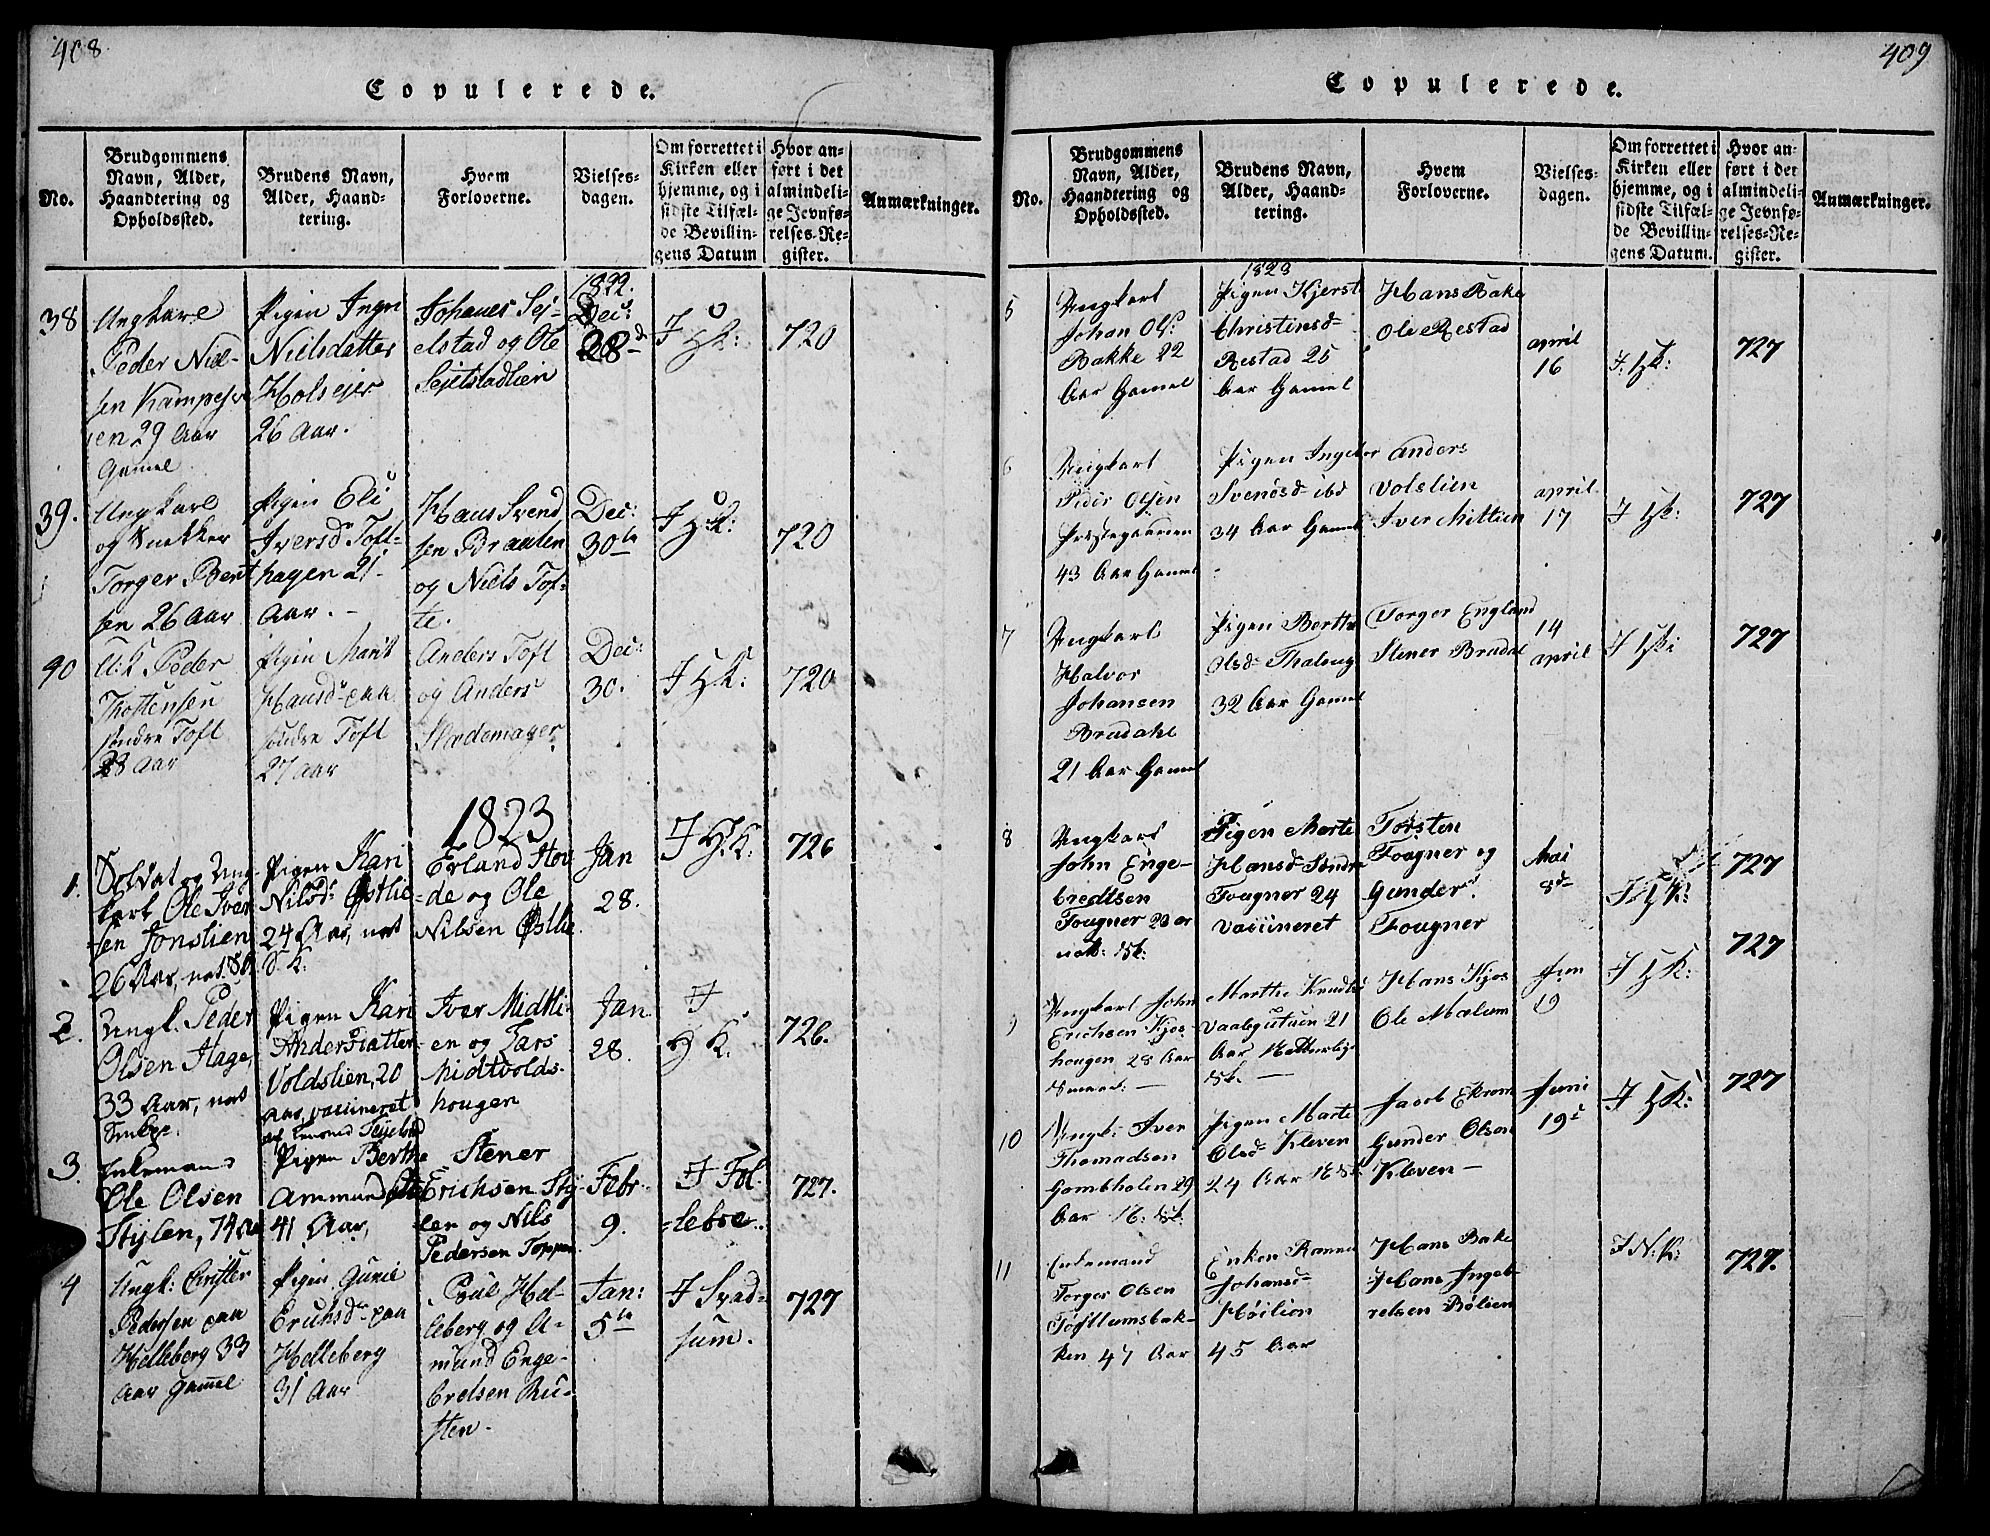 408
Copulerede.
No.
Brudgommens
Navn, Alder,
Haandtering og
Opholdssted.
Brudens Navn,
Alder, Haand-
tering.
Hvem
Forloverne.
Vielses-
dagen.
Om forrettet i
Kirken eller
hjemme, og i
sidste Tilfæl-
de Bevillin-
gens Datum
Hvor an-
ført i det
almindeli-
ge Jevnfø-
relses-Re-
gister.
Anmærkninger.
38
Ungkarl
Peder Niel-
sen
sen 29 Aar
Gamel
Pigen Ingri
Nielsdatter
Holsejer
26 Aar.
Johanes Sej-
elstad og Ole
Sejelstadlien
1822.
Dec:
28
I H K:
720
39.
Ungkarl
og Snekker
Torger Bent
sen 26 Aar
Pigen Eli
Iversd Toft-
hagen 21
Aar. -
Hans Svend
sen Braaten
og Niels Tof-
te.
Dec:
30te
I H K:
720
40
U:K Peder
Thostensen
søndre Toft
28 Aar
Pigen Marit
Hansd paa
søndre Toft
27 Aar
Anders Toft
og Anders
Slademager
Dec:
30.
I H K:
720
1823
1.
Soldat og Ung-
karl Ole Iver
sen Jonslien
26 Aar, nat. Sk.
Pigen Kari
Nilsd: Østlie
24 Aar, nat
S. K:
Erland Hov
de og Ole
Nilsen Østlie
Jan
28.
I H. K:
726
2.
Ungk. Peder
Olsen Hage,
33 Aar, nat
Pigen Kari
Andersdatter
Voldslien, 20
Aar, vaccineret
Iver Midtli-
en og Lars
Midtvolds-
hougen
Jan
28.
I
H K.
726.
3.
Enkemand
Ole Olsen
Stylen, 74 Aar
Pigen Berthe
Ammundsdt
41 Aar,
Stener
Erichsen Sty-
len og Nils
Pedersen Toppen
Febr.
9.
I Fol-
lebue.
727.
4
Ungk: Christer
Pedersen paa
Helleberg 33
Aar Gamel
Pigen Gunil
Erichsdr paa
Helleberg
31 Aar
Poul Hel-
leberg og A-
mund Enge-
bredsen Ru-
sten.
Jan:
5te
I Svad-
sum.
727
409
Copulerede.
No.
Brudgommens
Navn, Alder,
Haandtering og
Opholdssted.
Brudens Navn,
Alder, Haand-
tering.
Hvem
Forloverne.
Vielses-
dagen.
Om forrettet i
Kirken eller
hjemme, og i
sidste Tilfæl-
de Bevillin-
gens Datum.
Hvor an-
ført i det
almindeli-
ge Jevnfø-
relses-Re-
gister.
Anmærkninger.
5
Ungkarl
Johan Ols:
Bakke 22
Aar Gamel
1823
Pigen Kjerst
Christensd
Restad 25
Aar Gamel
Hans Bake
Ole Restad
april
16
I: H K:
727
6
Ungkarl
Peder Olsen
Prestegaarden
43 Aar Gamel
Pigen Ingebor
Svensd ibd
34 Aar Gamel
Anders
Volslien
Iver Mitlien
april
17
I H K:
727
7
Ungkarl
Halvor
Johansen
Brudahl
21 Aar Gamel
Pigen Berthe
Olsd
32 Aar Gamel
Torger England
Stener Brudal
14
april
I H K:
727
8
Ungkarl
John Enge-
bredtsen
Fougner 23 ar
nat: Sk:
Pigen Marte
Hansd Søndre
Fougner 24
vaccineret
Torsten
Fougner og
Gunder
Fougner
Mai
8de
I H K:
727
9
Ungkarl John
Erichsen Kjos
hougen 28 Aar
Marthe Knudsd
21
Aar Natturlige
Sk. —
Hans Kjos
Ole Mælum
Jun
19
I H K:
727
10
Ungk: Iver
Thomasen
Gombholen 29
Aar
Pigen Marte
Olsd Kleven
24 Aar
Jacob Ekrem
Gunder Olsen
Kleven —
Juni
19d
I H K:
727
11
Enkemand
Torger Olsen
Tøftlumsbak-
ken 47 Aar
Enken Rannei
Johansd
Høilien
45 Aar
Hans Bake
Hans Ingeb-
retsen Bølien
I N: K:
727.